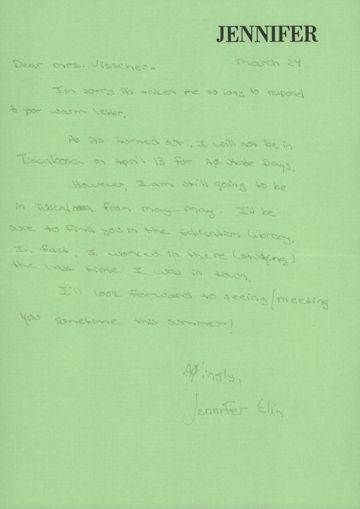 JENNIFER
March 24
Dear Mrs. Visscher -
I'm sorry its taken me so long to respond
to your warm letter.
As its turned out, I will not be in
Tuscaloosa on April 13 for AØ State Days.
However, I am still going to be
in Tuscaloosa from may-may. I'll be
sure to find you in the Education Library.
In fact, I worked in there (studying)
the last time I was in town.
I'll look forward to seeing/meeting
you sometime this summer!
AØingly,
Jennifer Elin